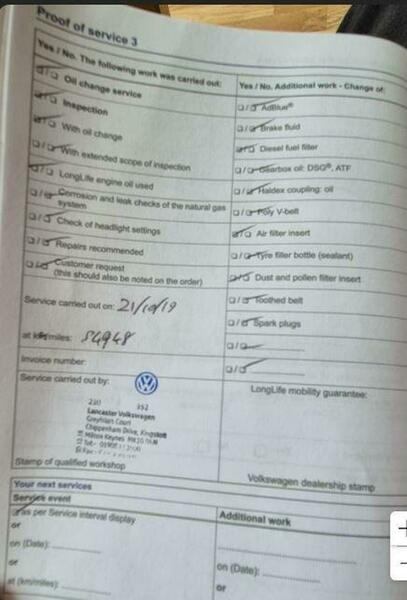 Proof of service 3
Yes / No. The following work was carried out:
Oil change service
Inspection
With oil change
With extended scope of inspection
LongLife engine oil used
Corrosion and leak checks of the natural gas
system
Check of headlight settings
Repairs recommended
Customer request
(this should also be noted on the order)
Service carried out on: 21/10/19
at km/miles: 54948
Invoice number:
Service carried out by:
Lancaster Volkswagen
Greyfriars Court
Chippenham Drive, Kingston
Milton Keynes
Stamp of qualified workshop
Yes / No. Additional work - Change of:
AdBlue®
Brake fluid
Diesel fuel filter
Gearbox oil: DSG®, ATF
Haldex coupling: oil
Poly V-belt
Air filter insert
Tyre filler bottle (sealant)
Dust and pollen filter insert
Toothed belt
Spark plugs
LongLife mobility guarantee:
Volkswagen dealership stamp
Your next services
Service event
as per Service interval display
or
on (Date):
or
at (km/miles):
Additional work
on (Date):
or